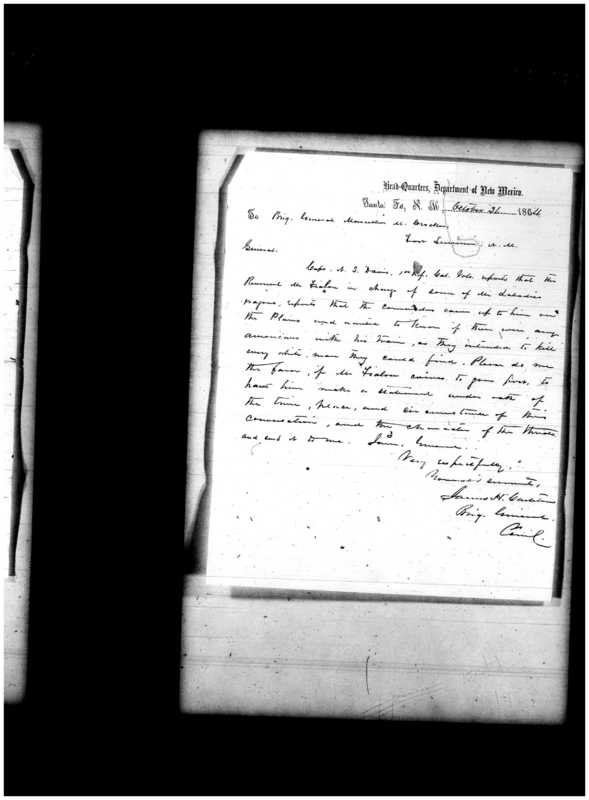 Head-Quarters, Department of New Mexico.
Santa Fe, N. M. October 26 1864
To Brig. General Marcellus M. Crocker,
Fort Sumner N. M.
General:
Capt. N. S. Davis, Inf. Cal. Vols. reports that the
in charge of some of Mr.
wagons, reports that the came up to him on
the Plains and wanted to know if there were any
americans with his train, as they intended to kill
every white man they could find. Please do me
the favor, if Mr. comes to your post, to
have him make a statement under oath of
the time, place, and circumstances of this
conversation, and the character of the threats
and send it to me. I am, General,
Very respectfully,
Your obt. servant,
James H. Carleton
Brig. General.